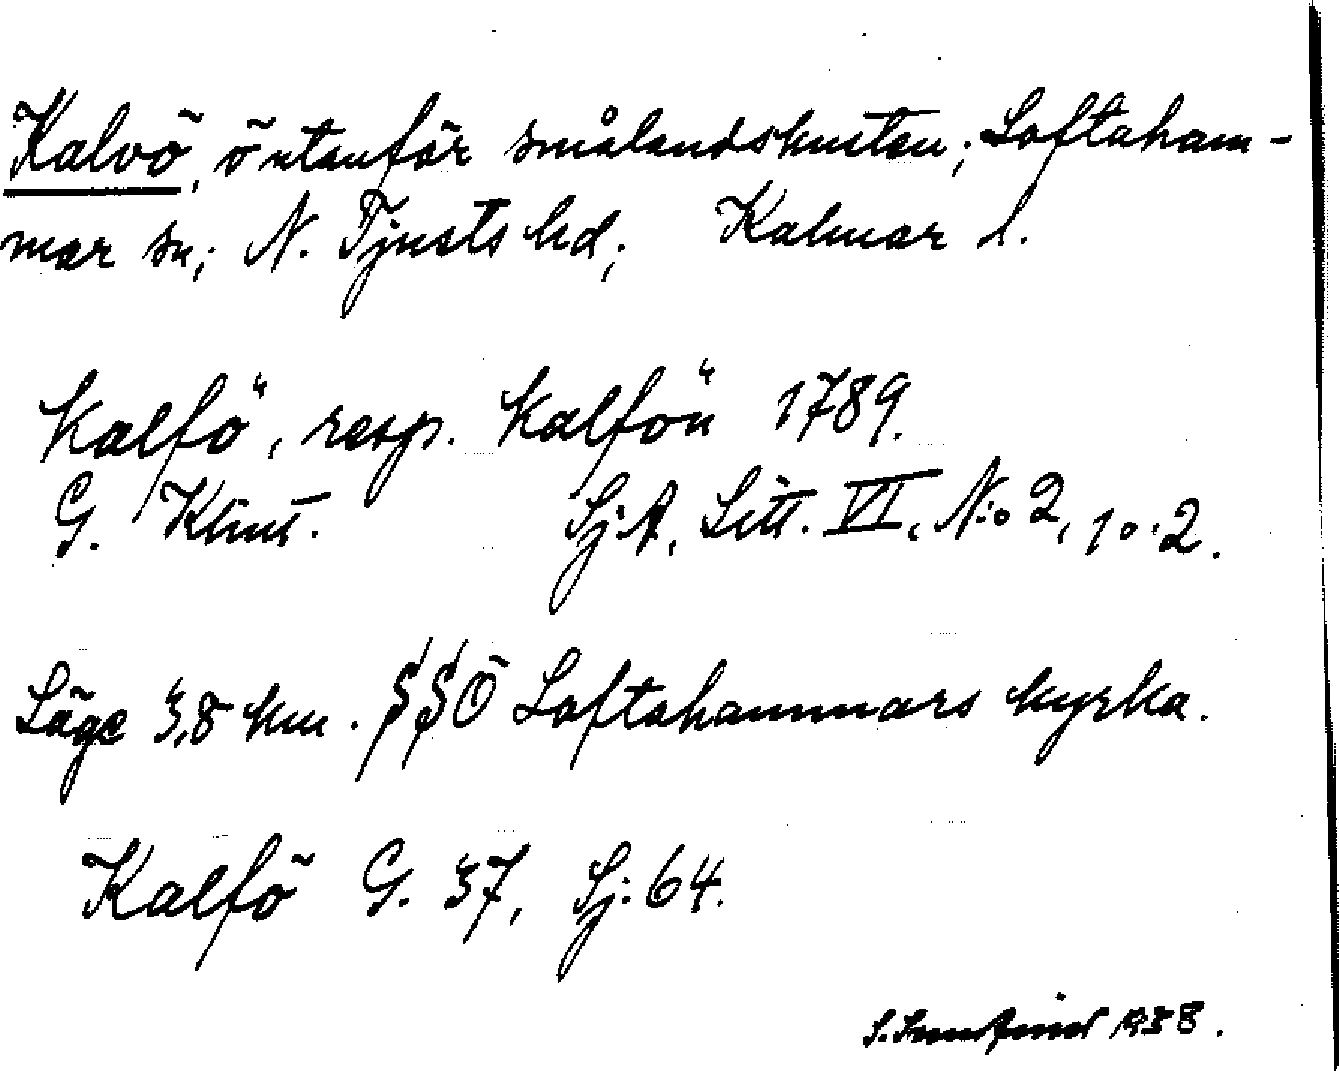 Kalvö, ö utanför smålandskusten; Loftaham-
mar sn; N. Tjusts hd; Kalmar l.
Kalfö, resp. Kalfön 1789.
G. Klint. Sj.A, Litt. VI, N:o 2, 1o:2.
Läge 3,8 km. SSÖ Loftahammars kyrka.
Kalfö G. 37, Sj: 64.
S. 1938.